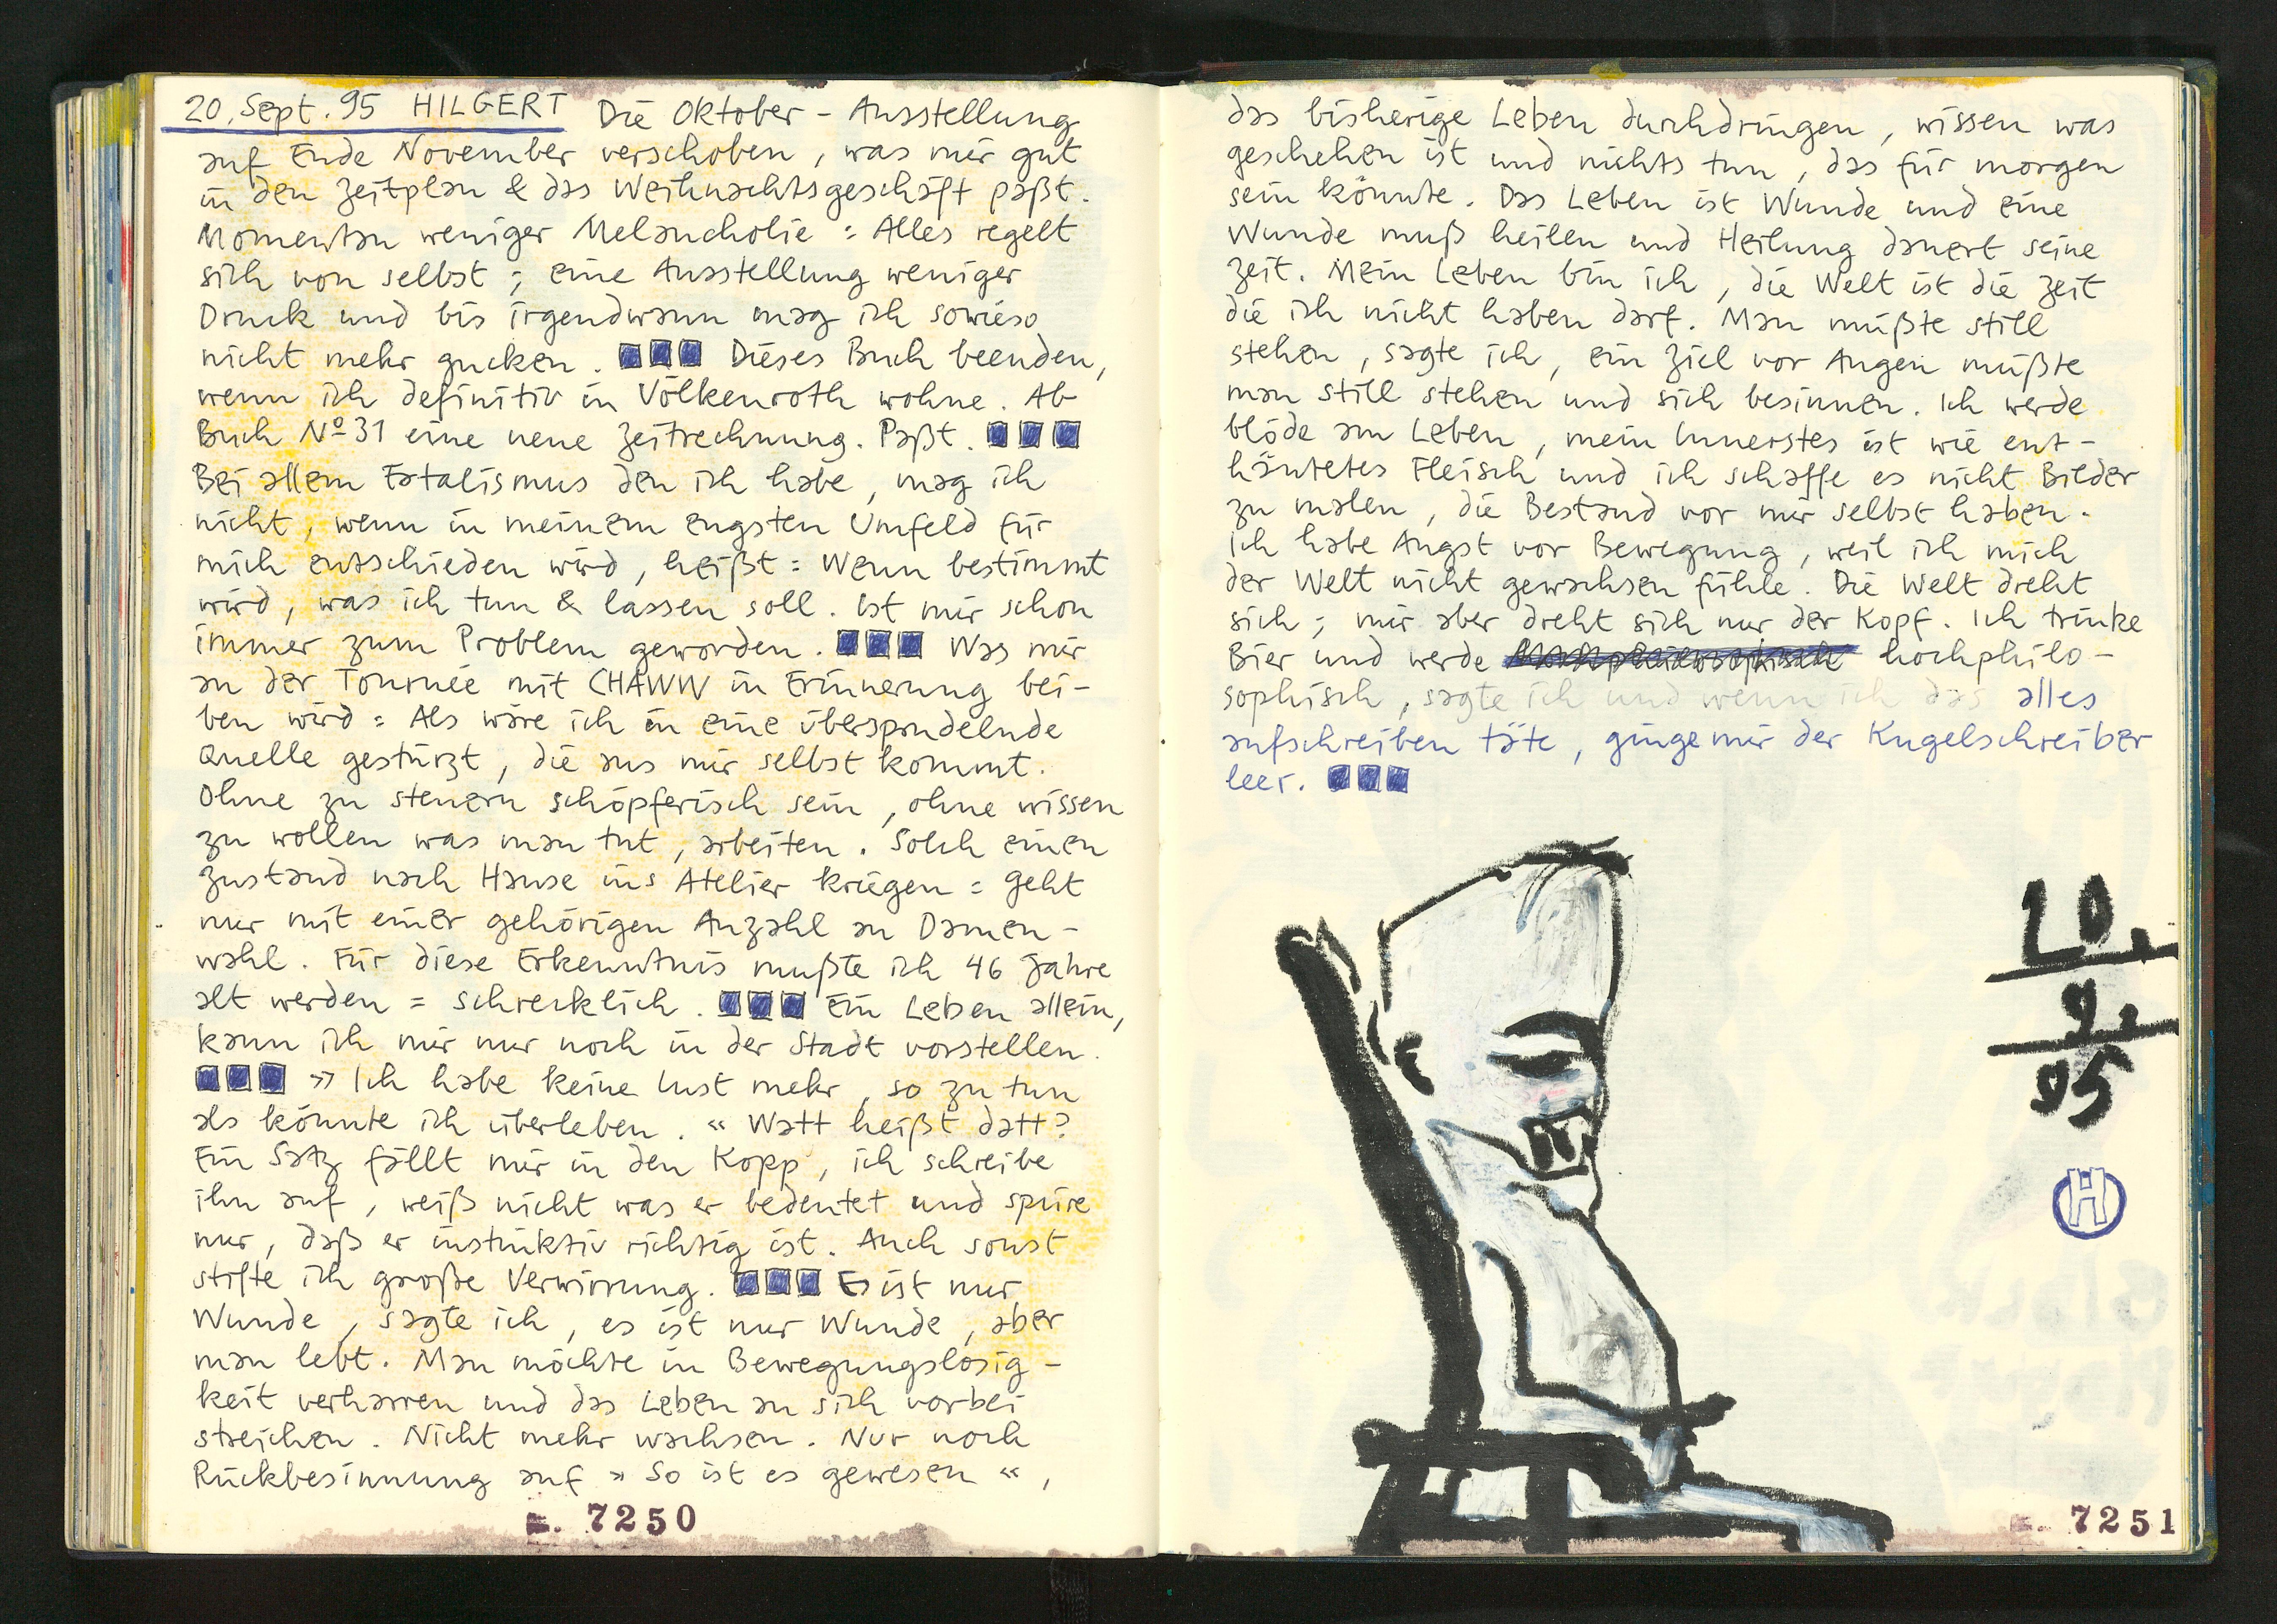 20. Sept. 95 HILGERT Die Oktober - Ausstellung
auf Ende November verschoben, was mir gut
in den Zeitplan & das Weihnachtsgeschäft paßt.
Momentan weniger Melancholie : Alles regelt
sich von selbst ; eine Ausstellung weniger
Druck und bis irgendwann mag ich sowieso
nicht mehr gucken. Dieses Buch beenden,
wenn ich definitiv in Völkenroth wohne. Ab
Buch Nº 31 eine neue Zeitrechnung. Paßt.
Bei allem Fatalismus den ich habe, mag ich
nicht, wenn in meinem engsten Umfeld für
mich entschieden wird, heißt : Wenn bestimmt
wird, was ich tun & lassen soll. Ist mir schon
immer zum Problem geworden. Was mir
an der Tournée mit CHAWW in Erinnerung bei-
ben wird : Als wäre ich in eine übersprudelnde
Quelle gestürzt, die aus mir selbst kommt.
Ohne zu steuern schöpferisch sein, ohne wissen
zu wollen was man tut, arbeiten. Solch einen
Zustand nach Hause ins Atelier kriegen : Geht
nur mit einer gehörigen Anzahl an Damen-
wahl. Für diese Erkenntnis mußte ich 46 Jahre
alt werden = schrecklich. Ein Leben allein,
kann ich mir nur noch in der Stadt vorstellen.
» Ich habe keine Lust mehr, so zu tun
als könnte ich überleben. « Watt heißt datt?
Ein Satz fällt mir in den Kopp, ich schreibe
ihn auf, weiß nicht was er bedeutet und spüre
nur, daß er instinktiv richtig ist. Auch sonst
stifte ich große Verwirrung. Es ist nur
Wunde, sagte ich, es ist nur Wunde, aber
man lebt. Man möchte in Bewegungslosig-
keit verharren und das Leben an sich vorbei
streichen. Nicht mehr wachsen. Nur noch
Rückbesinnung auf » So ist es gewesen «,
7250
das bisherige Leben durchdringen, wissen was
geschehen ist und nichts tun, das für morgen
sein könnte. Das Leben ist Wunde und eine
Wunde muß heilen und Heilung dauert seine
Zeit. Mein Leben bin ich, die Welt ist die Zeit
die ich nicht haben darf. Man müßte still
stehen, sagte ich, ein Ziel vor Augen müßte
man still stehen und sich besinnen. Ich werde
blöde am Leben, mein Innerstes ist wie ent-
häutetes Fleisch und ich schaffe es nicht Bilder
zu malen, die Bestand vor mir selbst haben.
Ich habe Angst vor Bewegung, weil ich mich
der Welt nicht gewachsen fühle. Die Welt dreht
sich ; mir aber dreht sich nur der Kopf. Ich trinke
Bier und werde hochphilo-
sophisch, sagte ich und wenn ich das alles
aufschreiben täte, ginge mir der Kugelschreiber
leer.
20.
9.
95
H
7251